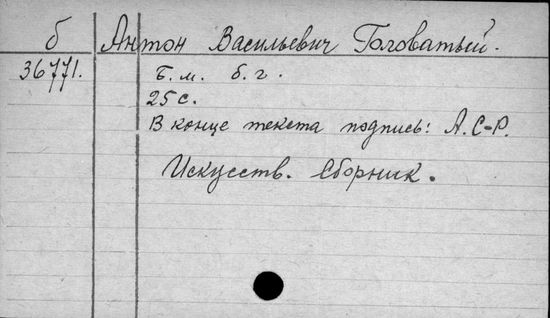 б Антон Васильевич Головатый.
36771. Б. м. б. г.
25 с.
В конце текста подпись: А. С-Р.
Искусств. Сборник.